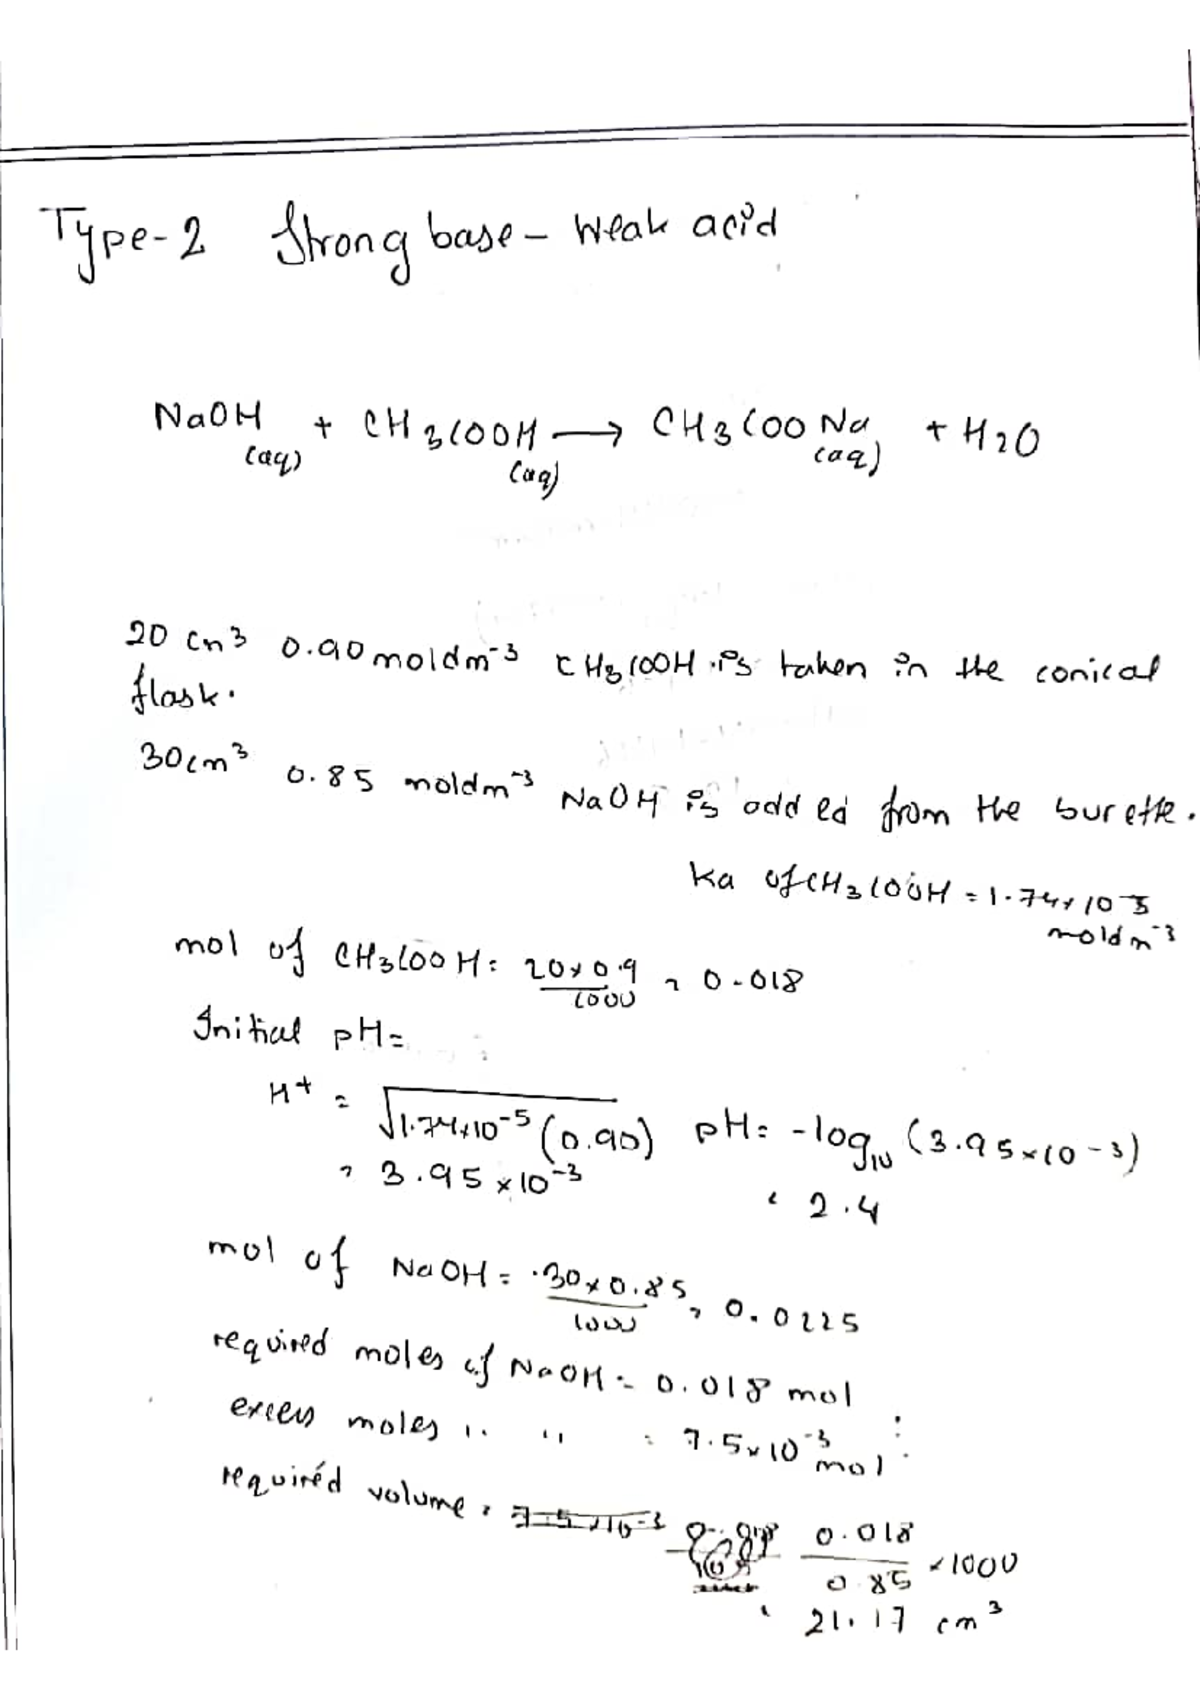 Type-2 Strong base - Weak acid
NaOH (aq) + CH3COOH (aq) → CH3COONa (aq) + H2O
20 cm3 0.90 moldm-3 CH3COOH is taken in the conical
flask.
30cm3 0.85 moldm-3 NaOH is added from the burette.
ka of CH3COOH = 1.74x10-5
moldm-3
mol of CH3COOH = 20x0.9/1000 = 0.018
Initial pH=
H+ = √1.74x10-5 (0.90) pH = -log10 (3.95x10-3)
= 3.95x10-3
= 2.4
mol of NaOH = 30x0.85/1000 = 0.0225
required moles of NaOH = 0.018 mol
excess moles ,, ,, = 7.5x10-3 mol
required volume = 0.018/0.85 x1000
= 21.17 cm3